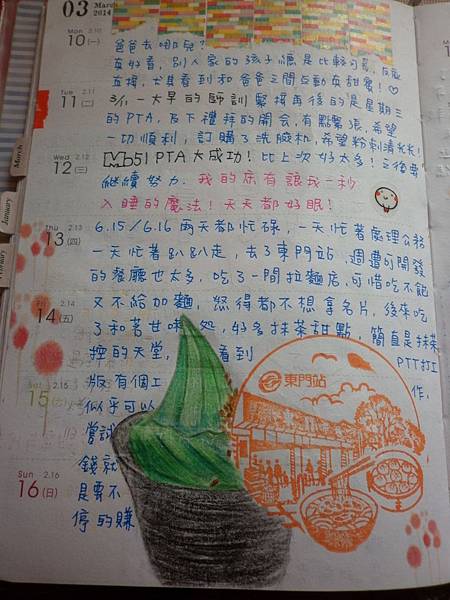 03 March 2014
Mon 2.10
10(一)
Tue 2.11
11(二)
Wed 2.12
12(三)
Thu 2.13
13(四)
Fri 2.14
14(五)
Sat 2.15
15(六)
Sun 2.16
16(日)
March
January
爸爸去哪兒?
真好看,別人家的孩子總是比較可愛,反應
直接,尤其看到和爸爸之間互動真甜蜜!
3/11 一大早的師訓 緊接再後的是星期三
的PTA,及下禮拜的開會,有點緊張,希望
一切順利,訂購了洗臉机,希望粉刺清光光!
M551 PTA 大成功!比上次好太多!之後要
繼續努力。我的床有讓我一秒
入睡的魔法!天天都好眠!
6.15/6.16 兩天都忙碌,一天忙著處理公務
一天忙著趴趴走,去了東門站 週遭可開發
的餐廳也太多,吃了一間拉麵店,可惜吃不飽
又不給加麵,怒得都不想拿名片,後來吃
了和茗甘味処,好多抹茶甜點,簡直是抹茶
控的天堂, 看到 PTT打工
版有個工 作,
似乎可以
嘗試
錢就
是要不
停的賺
東門站